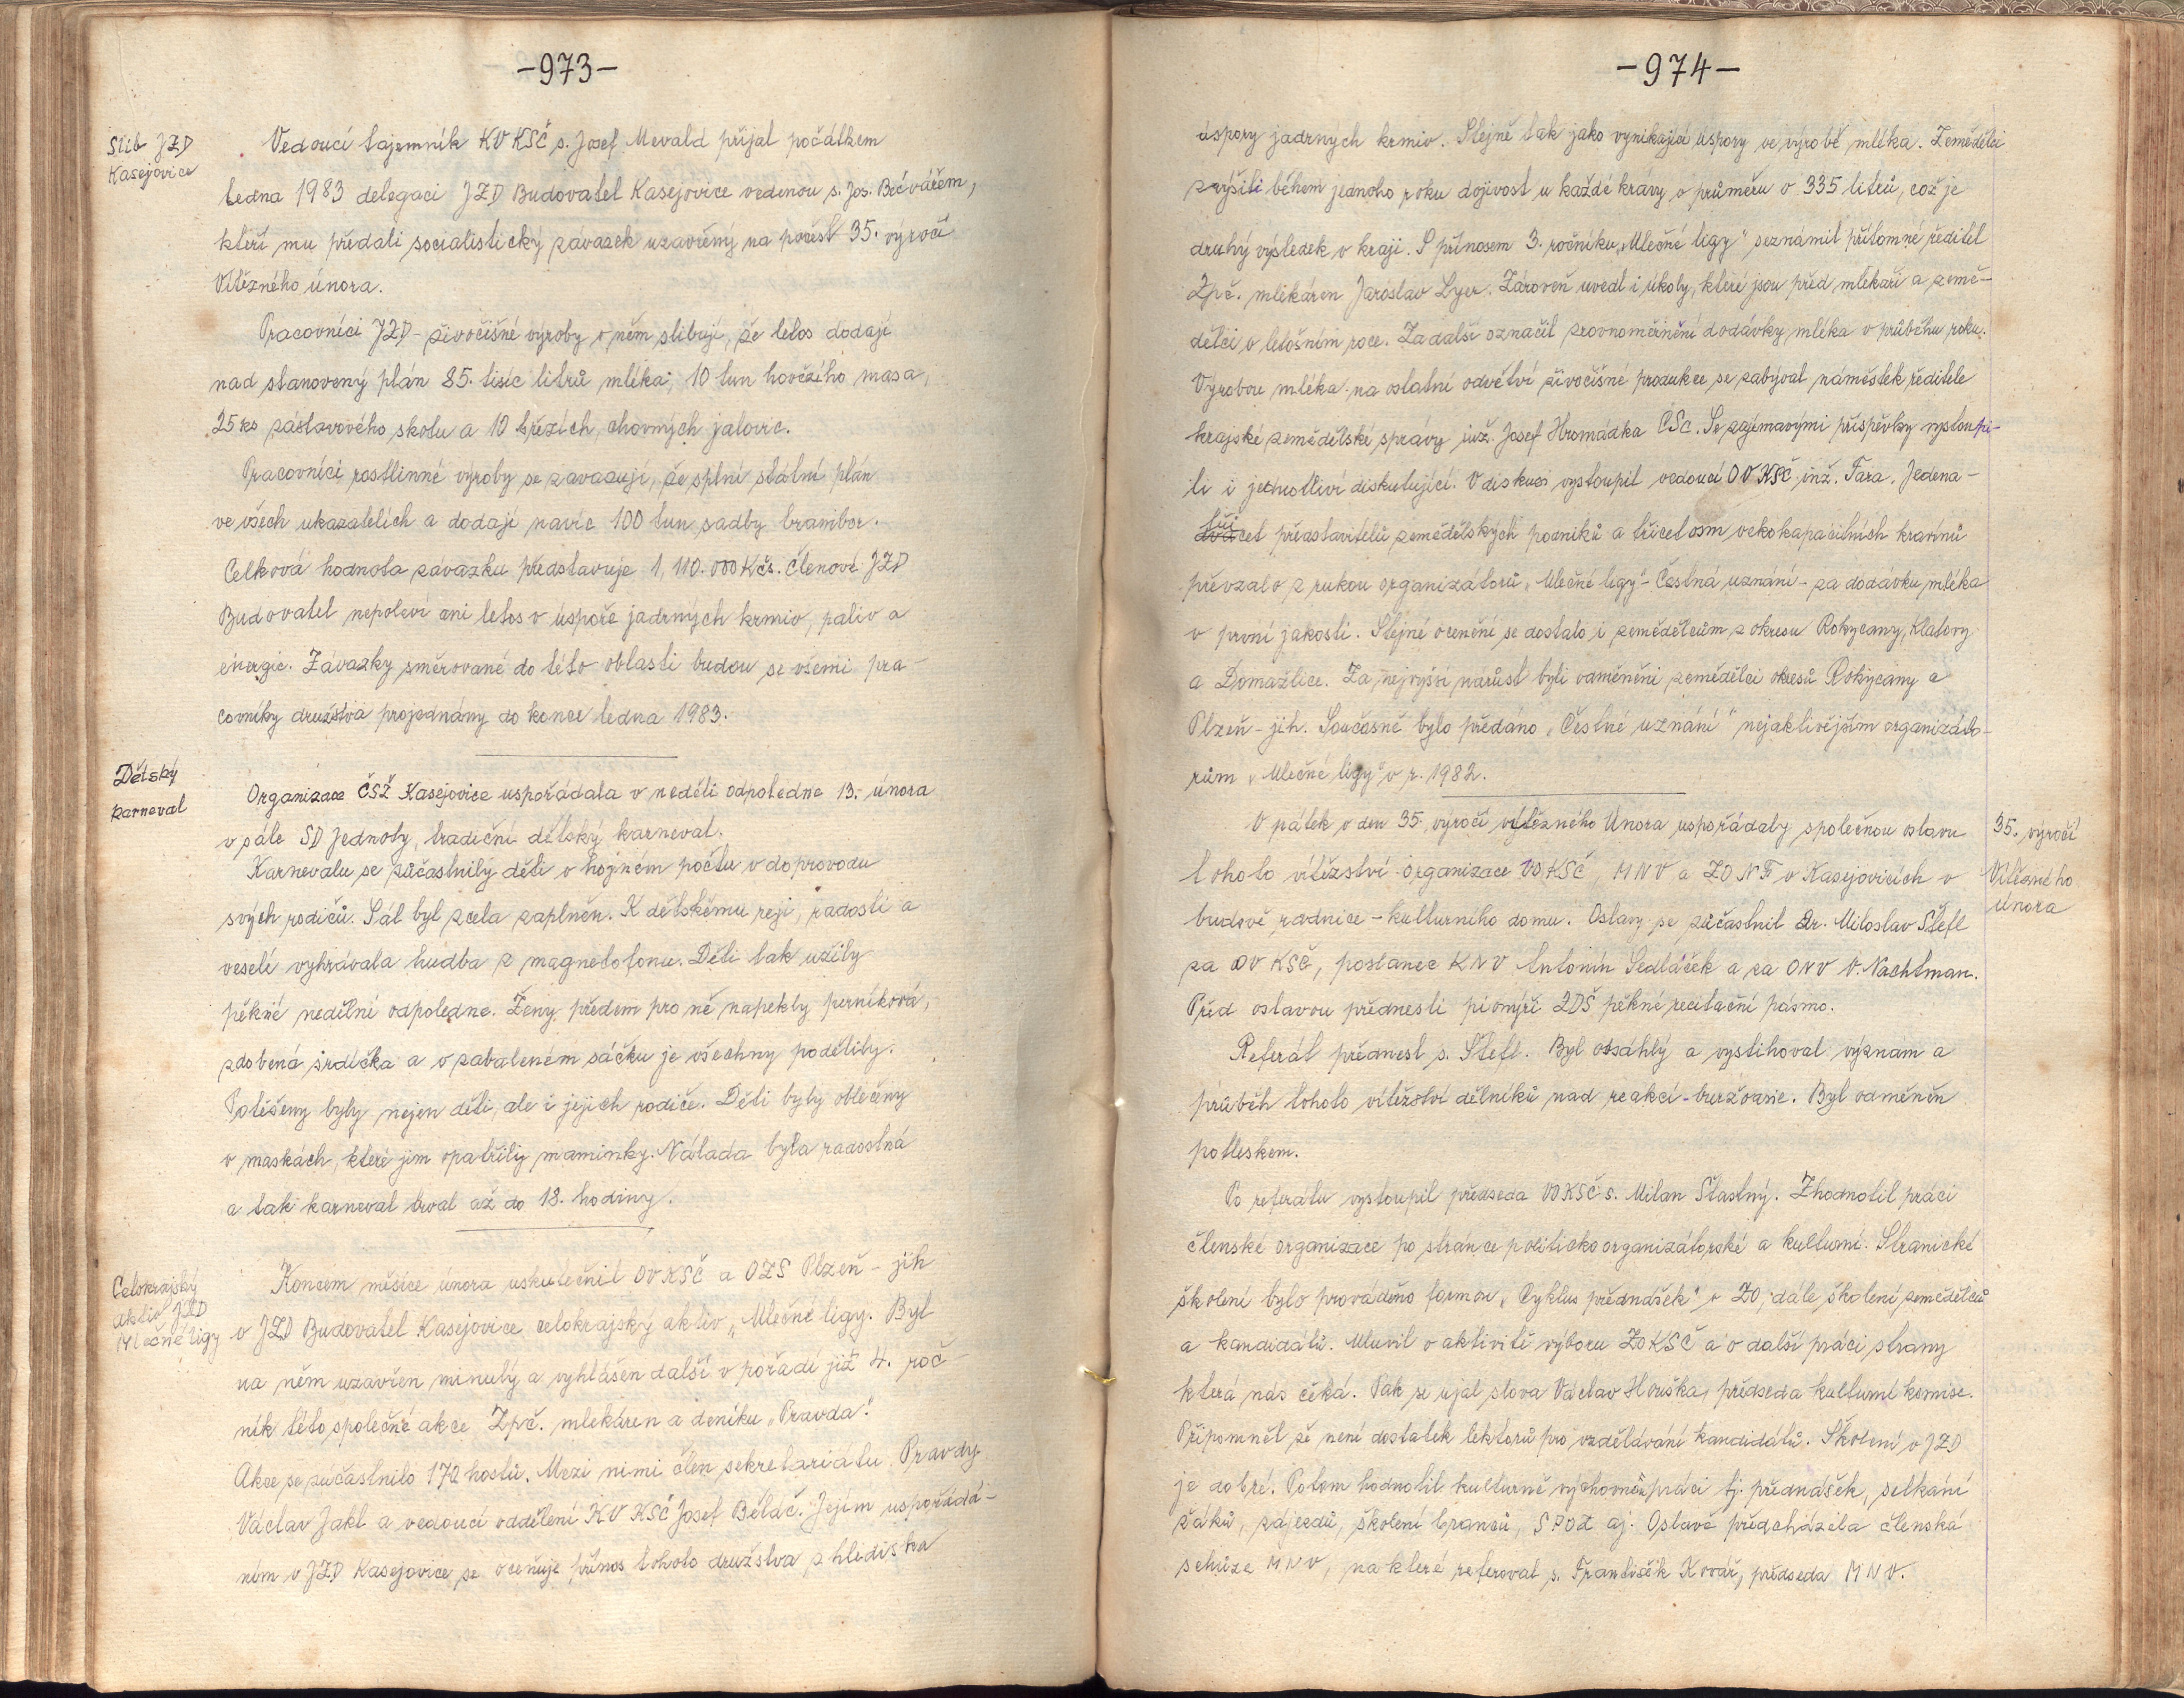 -973-
Slib JZD
Kasejovice
Vedoucí tajemník KV KSČ s. Josef Mevald přijal počátkem
ledna 1983 delegaci JZD Budovatel Kasejovice vedenou s. Jos. Bečvářem,
kteří mu předali socialistický závazek uzavřený na počest 35. výročí
Vítězného února.
Pracovníci JZD - živočišné výroby v něm slibují, že letos dodají
nad stanovený plán 85. tisíc litrů mléka, 10 tun hovězího masa,
25 ks zástavového skotu a 10 březích, chovných jalovic.
Pracovníci rostlinné výroby se zavazují, že splní státní plán
ve všech ukazatelích a dodají navíc 100 tun sadby brambor.
Celková hodnota závazku představuje 1,110.000 Kčs. Členové JZD
Budovatel nepoleví ani letos v úspoře jadrných krmiv, paliv a
energie. Závazky směrované do této oblasti budou se všemi pra-
covníky družstva projednány do konce ledna 1983.
Dětský
karneval
Organizace ČSŽ Kasejovice uspořádala v neděli odpoledne 13. února
v sále SD Jednoty, tradiční dětský karneval.
Karnevalu se zúčastnily děti v hojném počtu v doprovodu
svých rodičů. Sál byl zcela zaplněn. K dětskému reji, radosti a
veselí vyhrávala hudba z magnetofonu. Děti tak užily
pěkné nedělní odpoledne. Ženy předem pro ně napekly perníková,
zdobená srdíčka a v zabaleném sáčku je všechny podělily.
Potěšeny byly nejen děti, ale i jejich rodiče. Děti byly oblečeny
v maskách, které jim opatřily maminky. Nálada byla radostná
a tak karneval trval až do 18. hodiny.
Celokrajský
aktiv JZD
Mléčné ligy
Koncem měsíce února uskutečnil OV KSČ a OZS Plzeň - jih
v JZD Budovatel Kasejovice celokrajský aktiv „Mléčné ligy. Byl
na něm uzavřen minulý a vyhlášen další v pořadí již 4. roč-
ník této společné akce Zpč. mlékáren a deníku „Pravda“.
Akce se zúčastnilo 170 hostů. Mezi nimi člen sekretariatu Pravdy
Václav Jakl a vedoucí oddělení KV KSČ Josef Běláč. Jejím uspořádá-
ním v JZD Kasejovice se oceňuje přínos tohoto družstva z hlediska
-974-
úspory jadrných krmiv. Stejně tak jako vynikající úspory ve výrobě mléka. Zemědělci
zvýšili během jednoho roku dojivost u každé krávy v průměru o 335 litrů, což je
druhý výsledek v kraji. S přínosem 3. ročníku „Mléčné ligy“ seznámil přítomné ředitel
Zpč. mlékáren Jaroslav Lyer. Zároveň uvedl i úkoly, které jsou před mlékaři a země-
dělci v letošním roce. Za další označil zrovnoměrnění dodávky mléka v průběhu roku.
Výrobou mléka na ostatní odvětví živočišné produkce se zabýval náměstek ředitele
krajské zemědělské správy inž. Josef Hromádka CSc. Se zajímavými příspěvky vystoupi-
li i jednotliví diskutující. V diskusi vystoupil vedoucí OV KSČ inž. Fara. Jedena-
třicet představitelů zemědělských podniků a třicet osm velkokapacitních kravínů
převzalo z rukou organizátorů „Mléčné ligy“ - Čestná uznání - za dodávku mléka
v první jakosti. Stejné ocenění se dostalo i zemědělcům z okresu Rokycany, Klatovy
a Domažlice. Za nejvyšší nárůst byli odměněni zemědělci okresů Rokycany a
Plzeň - jih. Současně bylo předáno „Čestné uznání“ nejaktivějším organizáto-
rům „Mléčné ligy“ v r. 1982.
V pátek v den 35. výročí vítězného Února uspořádaly společnou oslavu
tohoto vítězství organizace VO KSČ, MNV a ZO NF v Kasejovicích v
budově radnice - kulturního domu. Oslavy se zúčastnil Dr. Miloslav Štefl
za OV KSČ, poslanec KNV Antonín Sedláček a za ONV V. Nachtman.
Před oslavou přednesli pionýři ZDŠ pěkné recitační pásmo.
35. výročí
Vítězného
února
Referát přednesl s. Štefl. Byl obsáhlý a vystihoval význam a
průběh tohoto vítězství dělníků nad reakcí - buržoasie. Byl odměněn
potleskem.
Po referátu vystoupil předseda VO KSČ s. Milan Šťastný. Zhodnotil práci
členské organizace po stránce politickoorganizátorské a kulturní. Stranické
školení bylo prováděno formou „Cyklus přednášek“ v ZO, dále školení zemědělců
a kandidátů. Mluvil o aktivitě výboru ZO KSČ a o další práci strany
která nás čeká. Pak se ujal slova Václav Hruška, předseda kulturní komise.
Připomněl že není dostatek lektorů pro vzdělávání kandidátů. Školení v JZD
je dobré. Potom hodnotil kulturně výchovnou práci tj. přednášek, setkání
žáků, zájezdů, školení branců, SPOZ aj. Oslavě předcházela členská
schůze MNV, na které referoval s. František Kovář, předseda MNV.